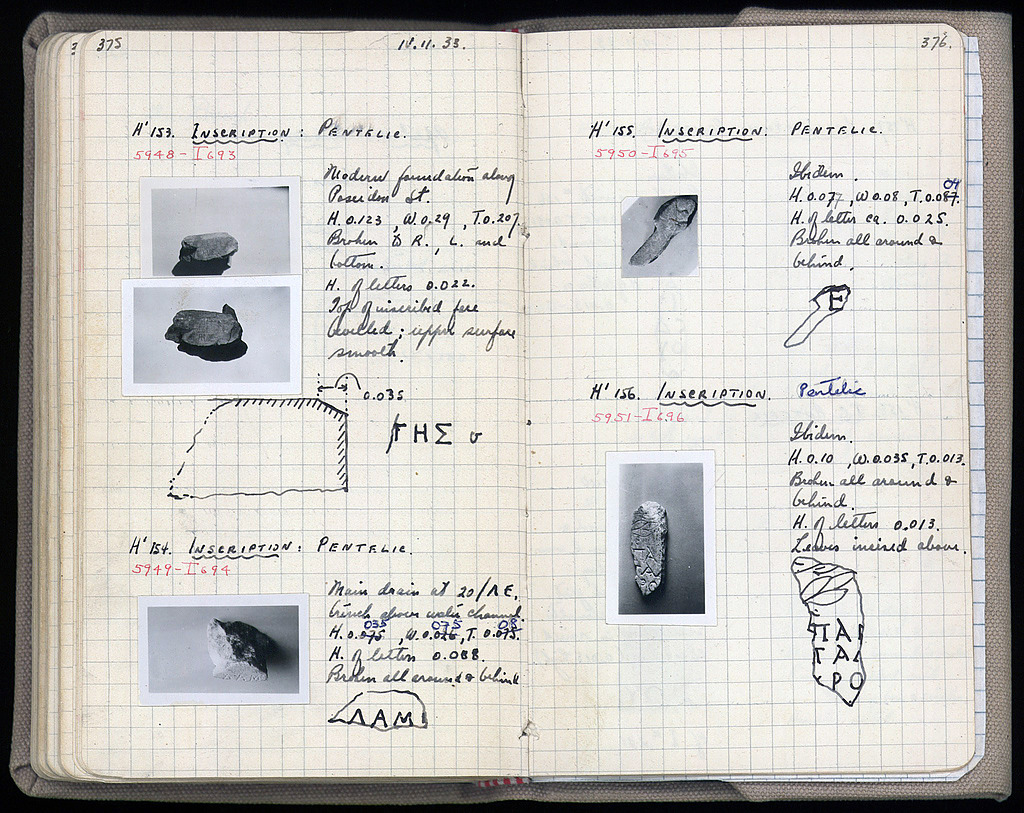 375
14.11.33.
H' 153. INSCRIPTION: PENTELIC.
5948 - I 693
Modern foundation along
Poseidon St.
H. 0.123, W. 0.29, T. 0.207.
Broken to R., L. and
bottom.
H. of letters 0.022.
Top of inscribed face
bevelled; upper surface
smooth.
0.035
ΓΗΣ υ
H' 154. INSCRIPTION: PENTELIC.
5949 - I 694
Main drain at 20/ΛΕ,
trench above water channel.
035 075 08
H. 0.075, W. 0.026, T. 0.075.
H. of letters 0.088.
Broken all around & behind
ΛΑΜ
376.
H' 155. INSCRIPTION. PENTELIC.
5950 - I 695
Ibidem.
04
H. 0.077, W. 0.08, T. 0.087.
H. of letter ca. 0.025.
Broken all around &
behind.
Ε
H' 156. INSCRIPTION. Pentelic
5951 - I 696
Ibidem.
H. 0.10, W. 0.035, T. 0.013.
Broken all around &
behind.
H. of letters 0.013.
Leaves incised above.
ΠΑΙ
ΓΑΛ
ΡΟ